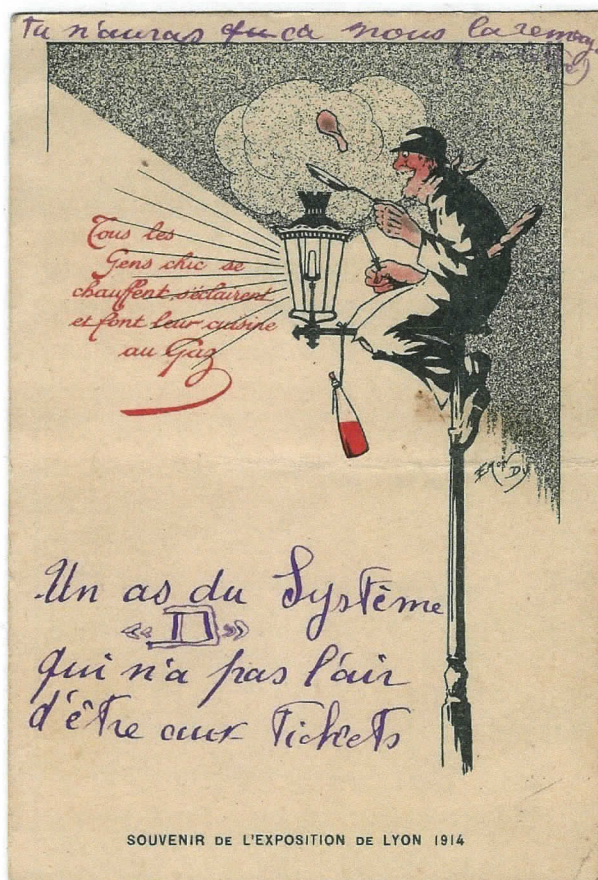 Tu n'auras qu'ca nous la
Tous les
Gens chic se
chauffent s'éclairent
et font leur cuisine
au Gaz
ERONDY
Un as du Système
«« D »»
qui n'a pas l'air
d'être aux Tickets
SOUVENIR DE L'EXPOSITION DE LYON 1914